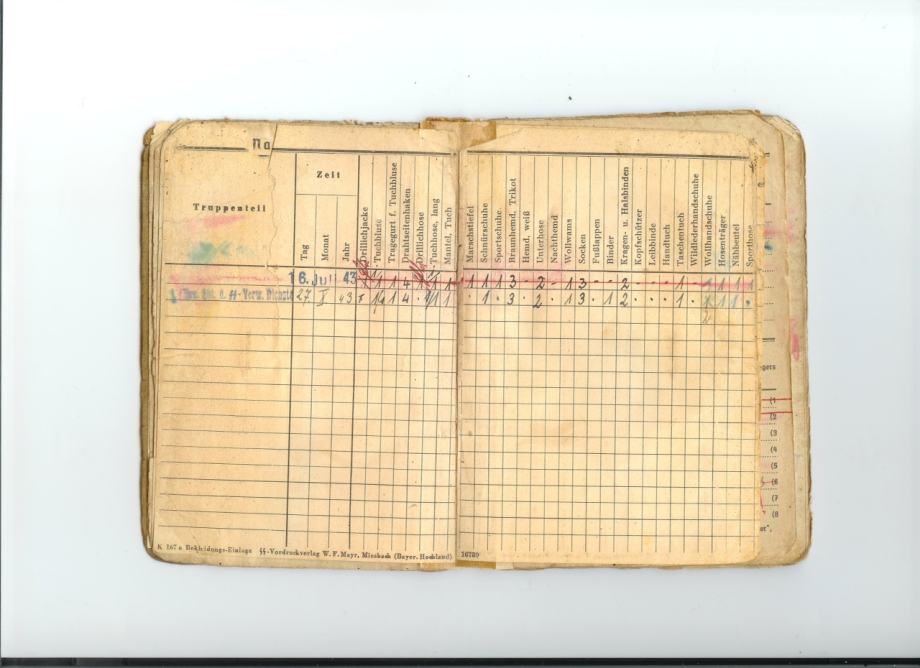 Na
Zeit
Truppenteil
Tag
Monat
Jahr
Drillichjacke
Tuchbluse
Tragegurt f. Tuchbluse
Drahtseitenhaken
Drillichhose
Tuchhose, lang
Mantel, Tuch
Marschstiefel
Schnürschuhe
Sportschuhe
Braunhemd, Trikot
Hemd, weiß
Unterhose
Nachthemd
Wollwams
Socken
Fußlappen
Binder
Kragen- u. Halsbinden
Kopfschützer
Leibbinde
Handtuch
Taschentuch
Wildlederhandschuhe
Wollhandschuhe
Hosenträger
Nähbeutel
Sporthose
16. Juli 43 1 4 1 1 1 1 1 3 · 2 · 1 3 · · 2 · · · 1 · 1 1 1 1
ϟϟ-Verw. Dienste 27. X 43 1 4 · 1 1 · 1 · 3 · 2 · 1 3 · 1 2 · · · 1 · 1 1 ·
2
K 167 a Bekleidungs-Einlage ϟϟ-Vordruckverlag W. F. Mayr, Miesbach (Bayer. Hochland)
16789
egers
(1
(2
(3
(4
(5
(6
(7
(8